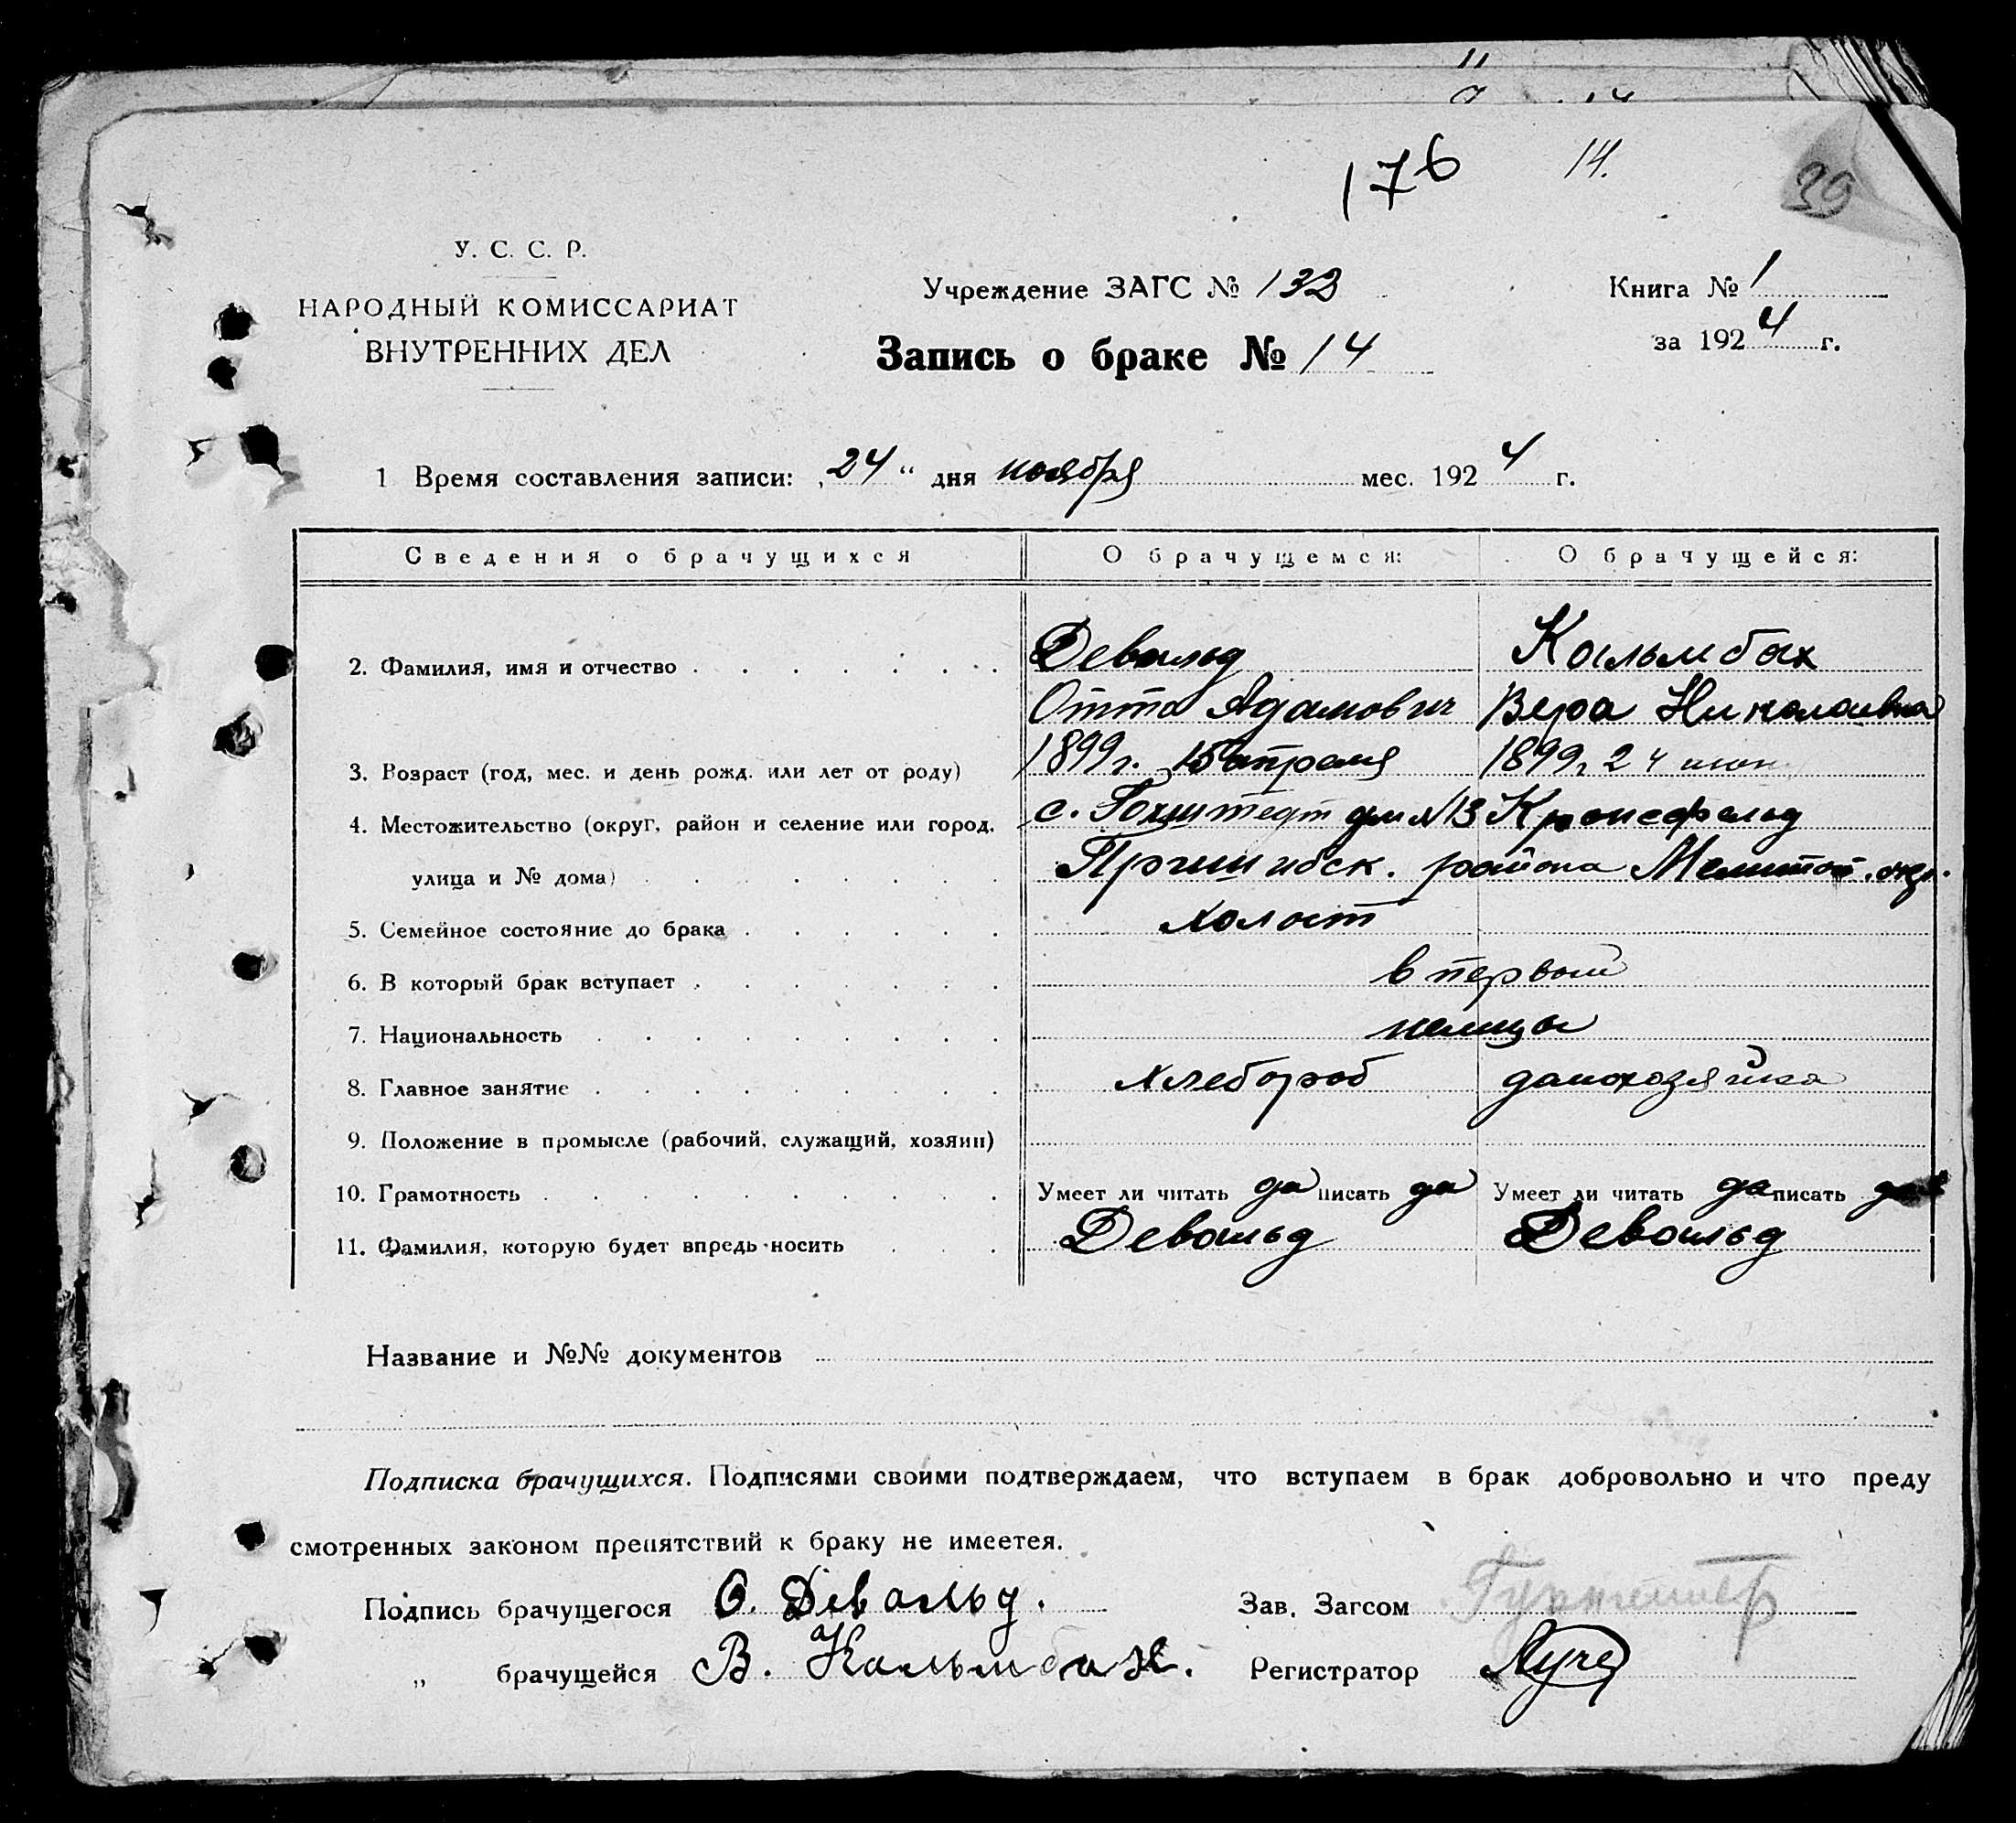 176 14. 39
У. С. С. Р.
НАРОДНЫЙ КОМИССАРИАТ
ВНУТРЕННИХ ДЕЛ
Учреждение ЗАГС № 132
Запись о браке № 14
Книга № 1
за 1924 г.
1 Время составления записи: „24“ дня ноября мес. 1924 г.
Сведения о брачущихся О брачущемся: О брачущейся:
2. Фамилия, имя и отчество Девальд Кальмбах
Отто Адамович Вера Николаевна
3. Возраст (год, мес. и день рожд. или лет от роду) 1899 г. 15 апреля 1899 г. 24 июн
4. Местожительство (округ, район и селение или город, с. Гохштедт дом №13 Кронсфельд
улица и № дома) Пришибск. района Мелитоп. окр.
5. Семейное состояние до брака холост
6. В который брак вступает в первый
7. Национальность немцы
8. Главное занятие хлебороб домохозяйка
9. Положение в промысле (рабочий, служащий, хозяин)
10. Грамотность Умеет ли читать да писать да Умеет ли читать да писать да
11. Фамилия, которую будет впредь носить Девальд Девальд
Название и №№ документов
Подписка брачущихся. Подписями своими подтверждаем, что вступаем в брак добровольно и что преду
смотренных законом препятствий к браку не имеется.
Подпись брачущегося О. Девальд. Зав. Загсом
„ брачущейся В. Кальмбах. Регистратор